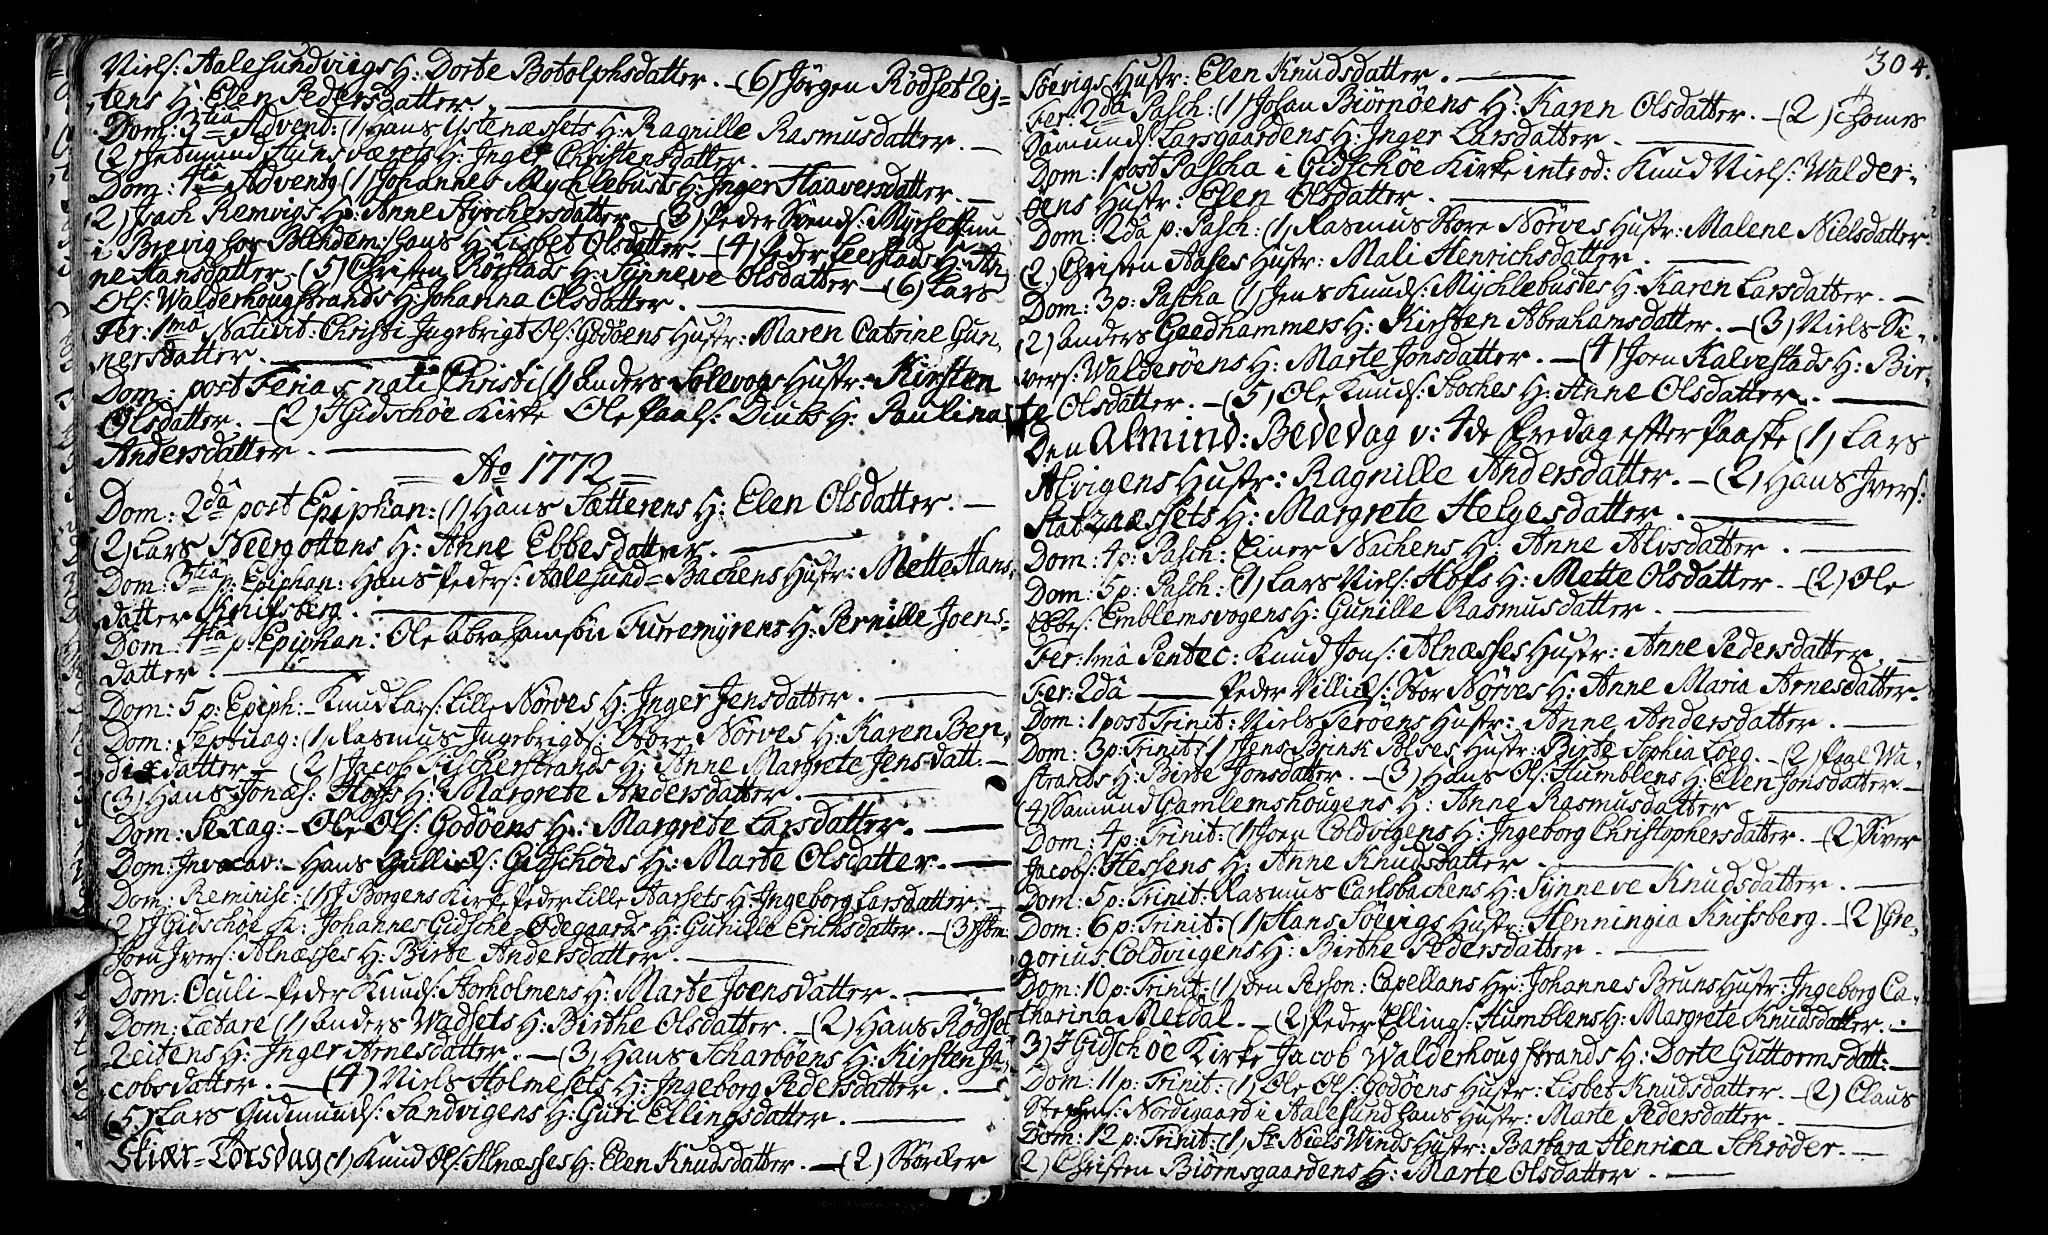 Niels: Aalesundviigs H: Dorte Botolphsdatter. – (6) Jörgen Rödset Lej-
tens H: Elen Pedersdatter.
Dom: 3tia Advend: (1) Hans Ystenæssets H: Ragnille Rasmusdatter. –
(2) Jetmund Hunsværets H: Inger Christensdatter.
Dom: 4ta Advent9 (1) Johannes Mychlebusts H: Inger Haaversdatter. –
(2) Isach Remvigs H: Anne Styrchersdatter – (3) Peder Svends:
i Brevig hos Bandem: hans H: Lisbet Olsdatter. – (4) Peder Leerstads H: An-
ne Hansdatter – (5) Christen Rörstads H: Synneve Olsdatter – (6) Lars
Ols: Walderhougstrands H: Johanna Olsdatter.
Fer: 1mâ Nativit: Christi Ingebrigt Ols: Godöens Hustr: Maren Catrine Gun-
nersdatter.
Dom: post Ferias nati Christi (1) Anders Solevogs Hustr: Kirsten
Olsdatter. – (2) I Gidschöe Kirke Ole Paals: Diubs H: Paulina
Andersdatter.
Ao 1772
Dom: 2dâ post Epiphan: (1) Hans Sætterens H: Elen Olsdatter. –
(2) Lars Neergottens H: Anne Ebbesdatter.
Dom: 3tiâ p: Epiphan: Hans Peders: Aalesund=Bachens Hustr: Mette Hans-
datter Knifsberg.
Dom: 4ta p: Epiphan: Ole Abrahamsön Furremyrens H: Pernille Joens-
datter.
Dom: 5 p: Epiph: – Knud Lars: Lille Nörves H: Inger Jensdatter.
Dom: Septuag: (1) Rasmus Ingebrigts: Store Nörves H: Karen Ben-
dixdatter – (2) Jacob Fischerstrands H: Anne Margrete Jensdatt. –
(3) Hans Jonæs: Hoffs H: Margrete Andersdatter.
Dom: Sexag: – Ole Ols: Godöens H: Margrete Larsdatter.
Dom: Invocav: – Hans Gullicks: Gidschöes H: Marte Olsdatter.
Dom: Reminisc: (1) I Borgens Kirke Peder Lille Aarsets H: Ingeborg Larsdatter. –
(2) I Gidschöe K: Johannes Gidsche-Ödegaards H: Gunille Erichsdatter. – (3)
Joen Ivers: Alnæsses H: Birte Andersdatter.
Dom: Oculi – Peder Knuds: Storholmens H: Marte Joensdatter.
Dom: Lætare (1) Anders Wadsets H: Birthe Olsdatter. – (2) Hans Rödset
Leitens H: Inger Arnesdatter. – (3) Hans Scharböens H: Kirsten Ja-
cobsdatter. – (4) Niels Holmesets H: Ingeborg Pedersdatter. –
(5) Lars Gudmunds: Sandvigens H: Guri Ellingsdatter.
Skiær=Torsdag (1) Knud Ols: Alnæsses H: Elen Knudsdatter. – (2) Störcker
304.
Söevigs Hustr: Elen Knudsdatter.
Fer: 2dâ Pasch: (1) Johan Biörnöens H: Karen Olsdatter. – (2) Thomes
Samunds: Larsgaardens H: Inger Larsdatter.
Dom: 1 post Pascha i Gidschöe Kirke introd: Knud Niels: Walder-
öens Hustr: Elen Olsdatter.
Dom: 2dâ p: Pasch: (1) Rasmus Store Nörves Hustr: Malene Nielsdatter
(2) Christen Aases Hustr: Mali Henrichsdatter.
Dom: 3 p: Pascha (1) Jens Knuds: Mychlebustes H: Karen Larsdatter. –
(2) Anders Geedhammers H: Kirsten Abrahamsdatter. – (3) Niels Si-
vers: Walderöens H: Marte Jonsdatter. – (4) Joen Kalvestads H: Bir-
te Olsdatter. – (5) Ole Knuds: Aaches H: Anne Olsdatter.
Den Almind: Bededag v: 4de Fredag efter Paaske (1) Lars
Alvigens Hustr: Ragnille Andersdatter. – (2) Hans Ivers:
Slatznæssets H: Margrete Helgesdatter.
Dom: 4 p: Pasch: Einer Nachens H: Anne Alvsdatter.
Dom: 5 p: Pasch: (1) Lars Niels: Hofs H: Mette Olsdatter. – (2) Ole
Ebbes: Emblemsvogens H: Gunille Rasmusdatter.
Fer: 1mâ Pentec: Knud Jons: Alnæsses Hustr: Anne Pedersdatter.
Fer: 2dâ — Peder Villicks: Stor Nörves H: Anne Maria Arnesdatter.
Dom: 1 post Trinit: Niels Teröens Hustr: Anne Andersdatter.
Dom: 3 p: Trinit: (1) Jens Brinsk Solses Hustr: Byrte Sophia Loeg. – (2) Paal Wa-
strands H: Birte Jonsdatter. – (3) Hans Ols: Humblens H: Elen Jonsdatter. –
(4) Samund Gamlemshougens H: Anne Rasmusdatter
Dom: 4 p: Trinit: (1) Joen Coldvigens H: Ingeborg Christophersdatter. – (2) Siver
Jacobs: Hessens H: Anne Knudsdatter.
Dom: 5 p: Trinit: Rasmus Carlsbachens H: Synneve Knudsdatter.
Dom: 6 p: Trinit: (1) Hans Söevigs Hustr: Henningia Knifsberg. – (2) Gre-
gorius Coldviigens H: Birthe Pedersdatter.
Dom: 10 p: Trinit: (1) Den Person: Capellans Hr: Johannes Bruns Hustr: Ingeborg Ca-
tharina Meldal. – (2) Peder Ellings: Humblens H: Margrete Knudsdatter. –
3) I Gidschöe Kirke Jacob Walderhougstrands H: Dorte Guttormsdatt: –
Dom: 11 p: Trinit: (1) Ole Ols: Godöens Hustr: Lisbet Knudsdatter. – (2) Claus
Stephens: Nordegaard i Aalesund hans Hustr: Marte Pedersdatter.
Dom: 12 p: Trinit: (1) Sr Niels Winds Hustr: Barbara Henrica Schröder. –
2) Christen Biörnsgaardens H: Marte Olsdatter.